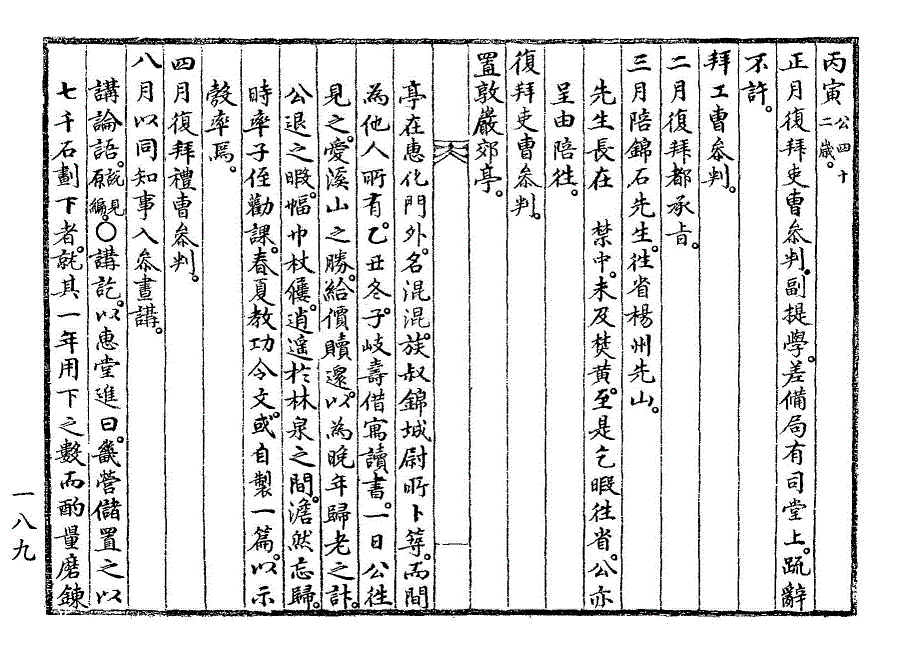 丙寅公四十二歲。
正月復拜吏曹參判。副提學。差備局有司堂上。䟽辭
不許。
拜工曹參判。
二月復拜都承旨。
三月陪錦石先生。徃省楊州先山。
先生長在 禁中。未及焚黃。至是乞暇徃省。公亦
呈由陪徃。
復拜吏曹參判。
置敦巖郊亭。
亭在惠化門外。名混混。族叔錦城尉所卜築。而間
為他人所有。乙丑冬。子岐壽借寓讀書。一日公徃
見之。愛溪山之勝。給價贖還。以為晩年歸老之計。
公退之暇。幅巾杖屨。逍遙於林泉之間。澹然忘歸。
時率子侄勸課。春夏教功令文。或自製一篇。以示
彀率焉。
四月復拜禮曹參判。
八月以同知事入參晝講。
講論語。說見原編。○講訖。以惠堂進曰。畿營儲置之以
七千石劃下者。就其一年用下之數而酌量磨鍊
一八九